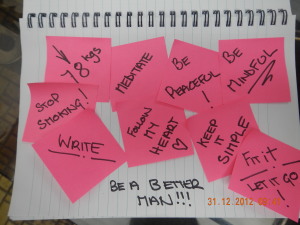 ↓ 8 kgs
MEDITATE
BE
PEACEFUL
!
BE
MINDFUL!
STOP
SMOKING!
WRITE
FOLLOW
MY
HEART ♡
KEEP
IT
SIMPLE
LET IT GO!
BE A BETTER
MAN!!!
31.12.2012